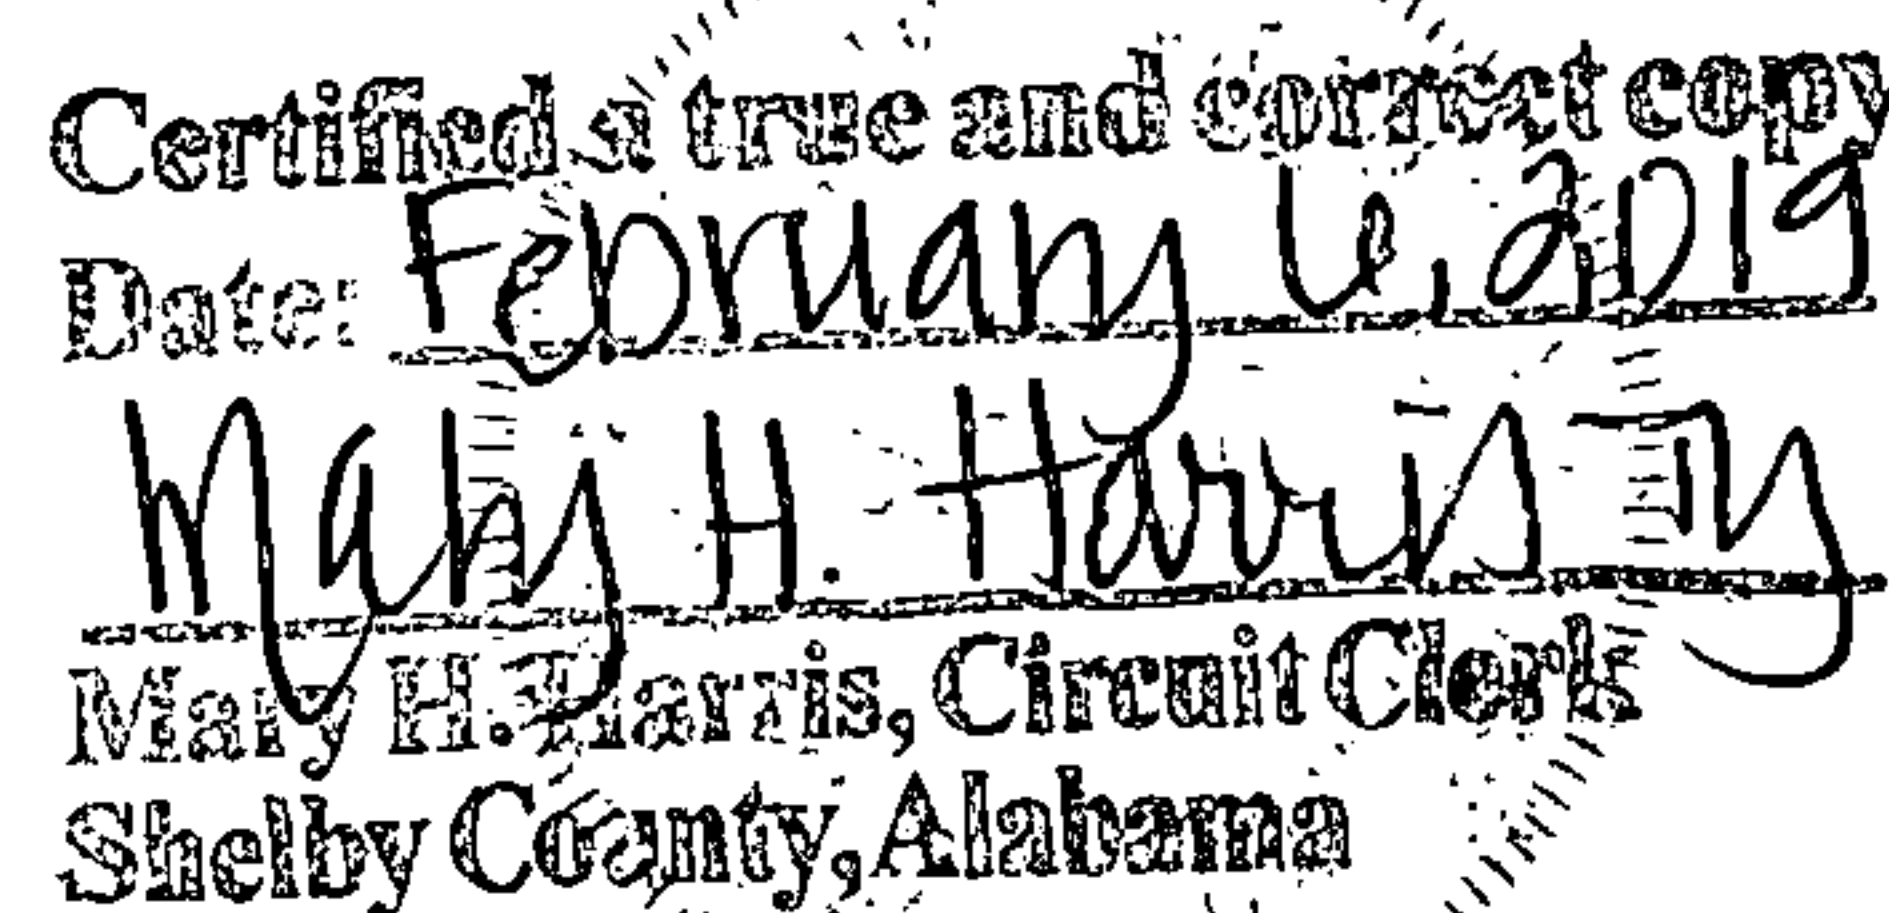 Certified a true and correct copy
Date: February 6, 2019
Mary H. Harris
Mary H. Harris, Circuit Clerk
Shelby County, Alabama